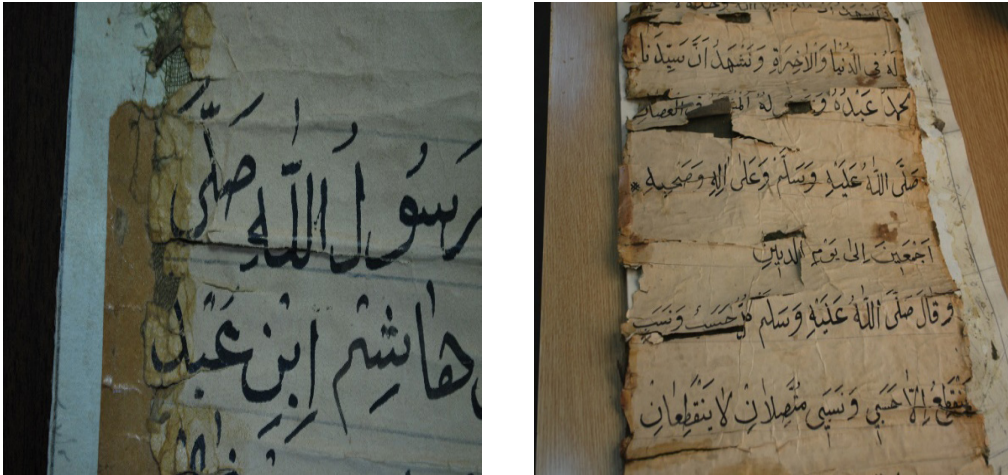 رَسُولُ اللّٰهِ صَلَّى
هَاشِمْ اِبْنِ عَبْدِ
لَهُ فِى الدُّنْيَا وَالْاٰخِرَةِ وَنَشْهَدُ اَنَّ سَيِّدَنَا
مُحَمَّد عَبْدُهُ الْعُصَاة
صَلَّى اللّٰهُ عَلَيْهِ وَسَلَّمْ وَعَلٰى اٰلِهِ وَصَحْبِهِ *
اَجْمَعِينَ اِلٰى يَوْمِ الدِّينِ
وَقَالَ صَلَّى اللّٰهُ عَلَيْهِ وَسَلَّمْ كُلُّ حَسَبٍ وَنَسَبٍ
يَنْقَطِعُ اِلَّا حَسَبِى وَنَسَبِى مُتَّصِلَانِ لَا يَنْقَطِعَانِ